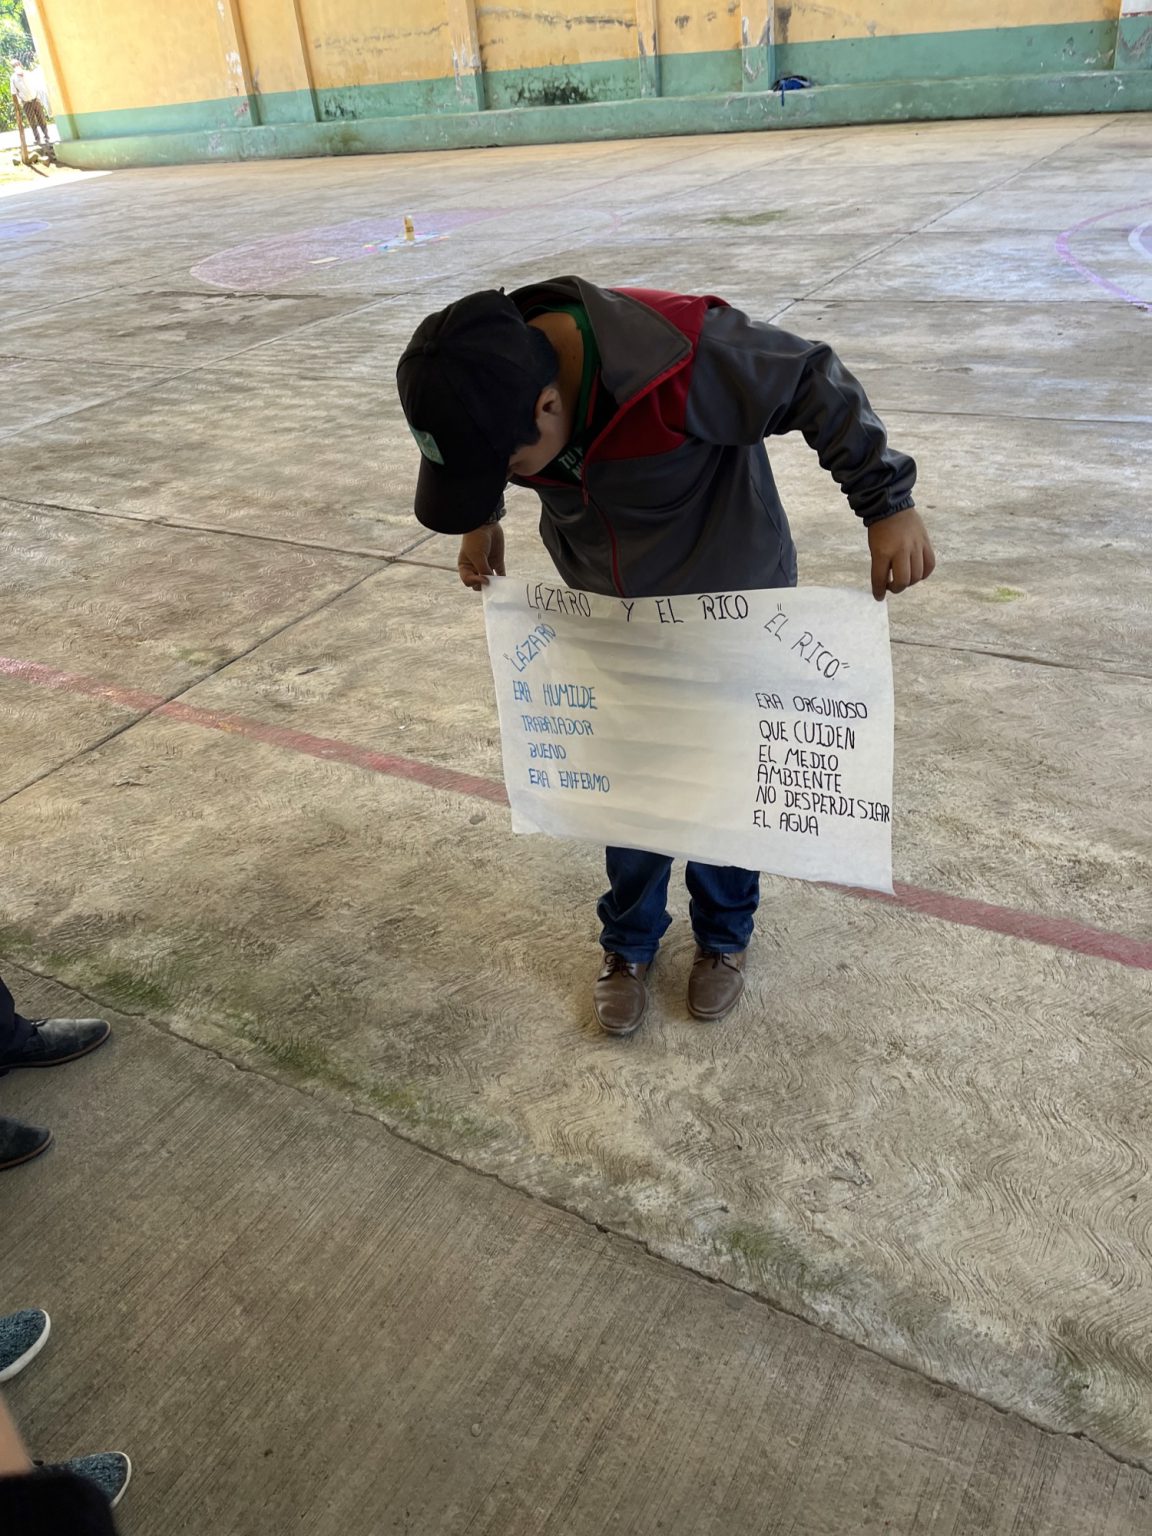 LÁZARO Y EL RICO
"LÁZARO"
ERA HUMILDE
TRABAJADOR
BUENO
ERA ENFERMO
"EL RICO"
ERA ORGULLOSO
QUE CUIDEN
EL MEDIO
AMBIENTE
NO DESPERDISIAR
EL AGUA
TU